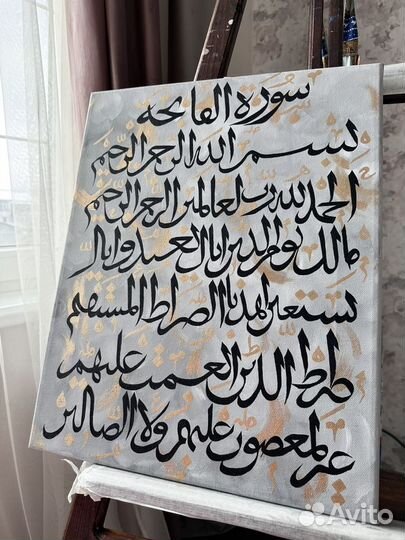 سورة الفاتحه
بسم الله الرحمن الرحيم
الحمد لله رب العالمين الرحمن الرحيم
مالك يوم الدين اياك نعبد واياك
نستعين اهدنا الصراط المستقيم
صراط الذين انعمت عليهم
غير المغضوب عليهم ولا الضالين
Avito